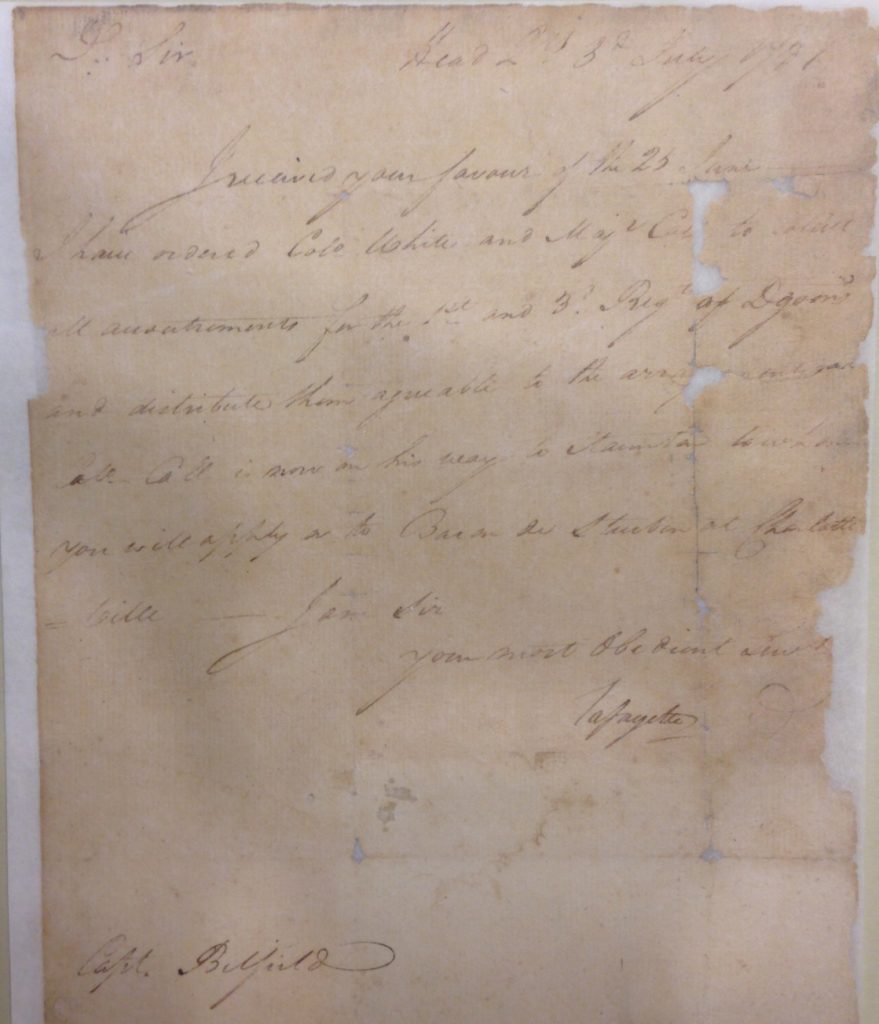 Dr. Sir Head Qrs 3d July 1781
I received your favour of the 25 June
I have ordered Colo White and Majr Call to
all accoutrements for the 1st and 3d. Regt of Dgoons
and distribute them agreable to the
Call is now on his way to Staunton to whom
you will apply or to Baron de Steuben at Charlotte
= ville — I am Sir
your most Obedient Servt
Lafayette
Capt. Belfield